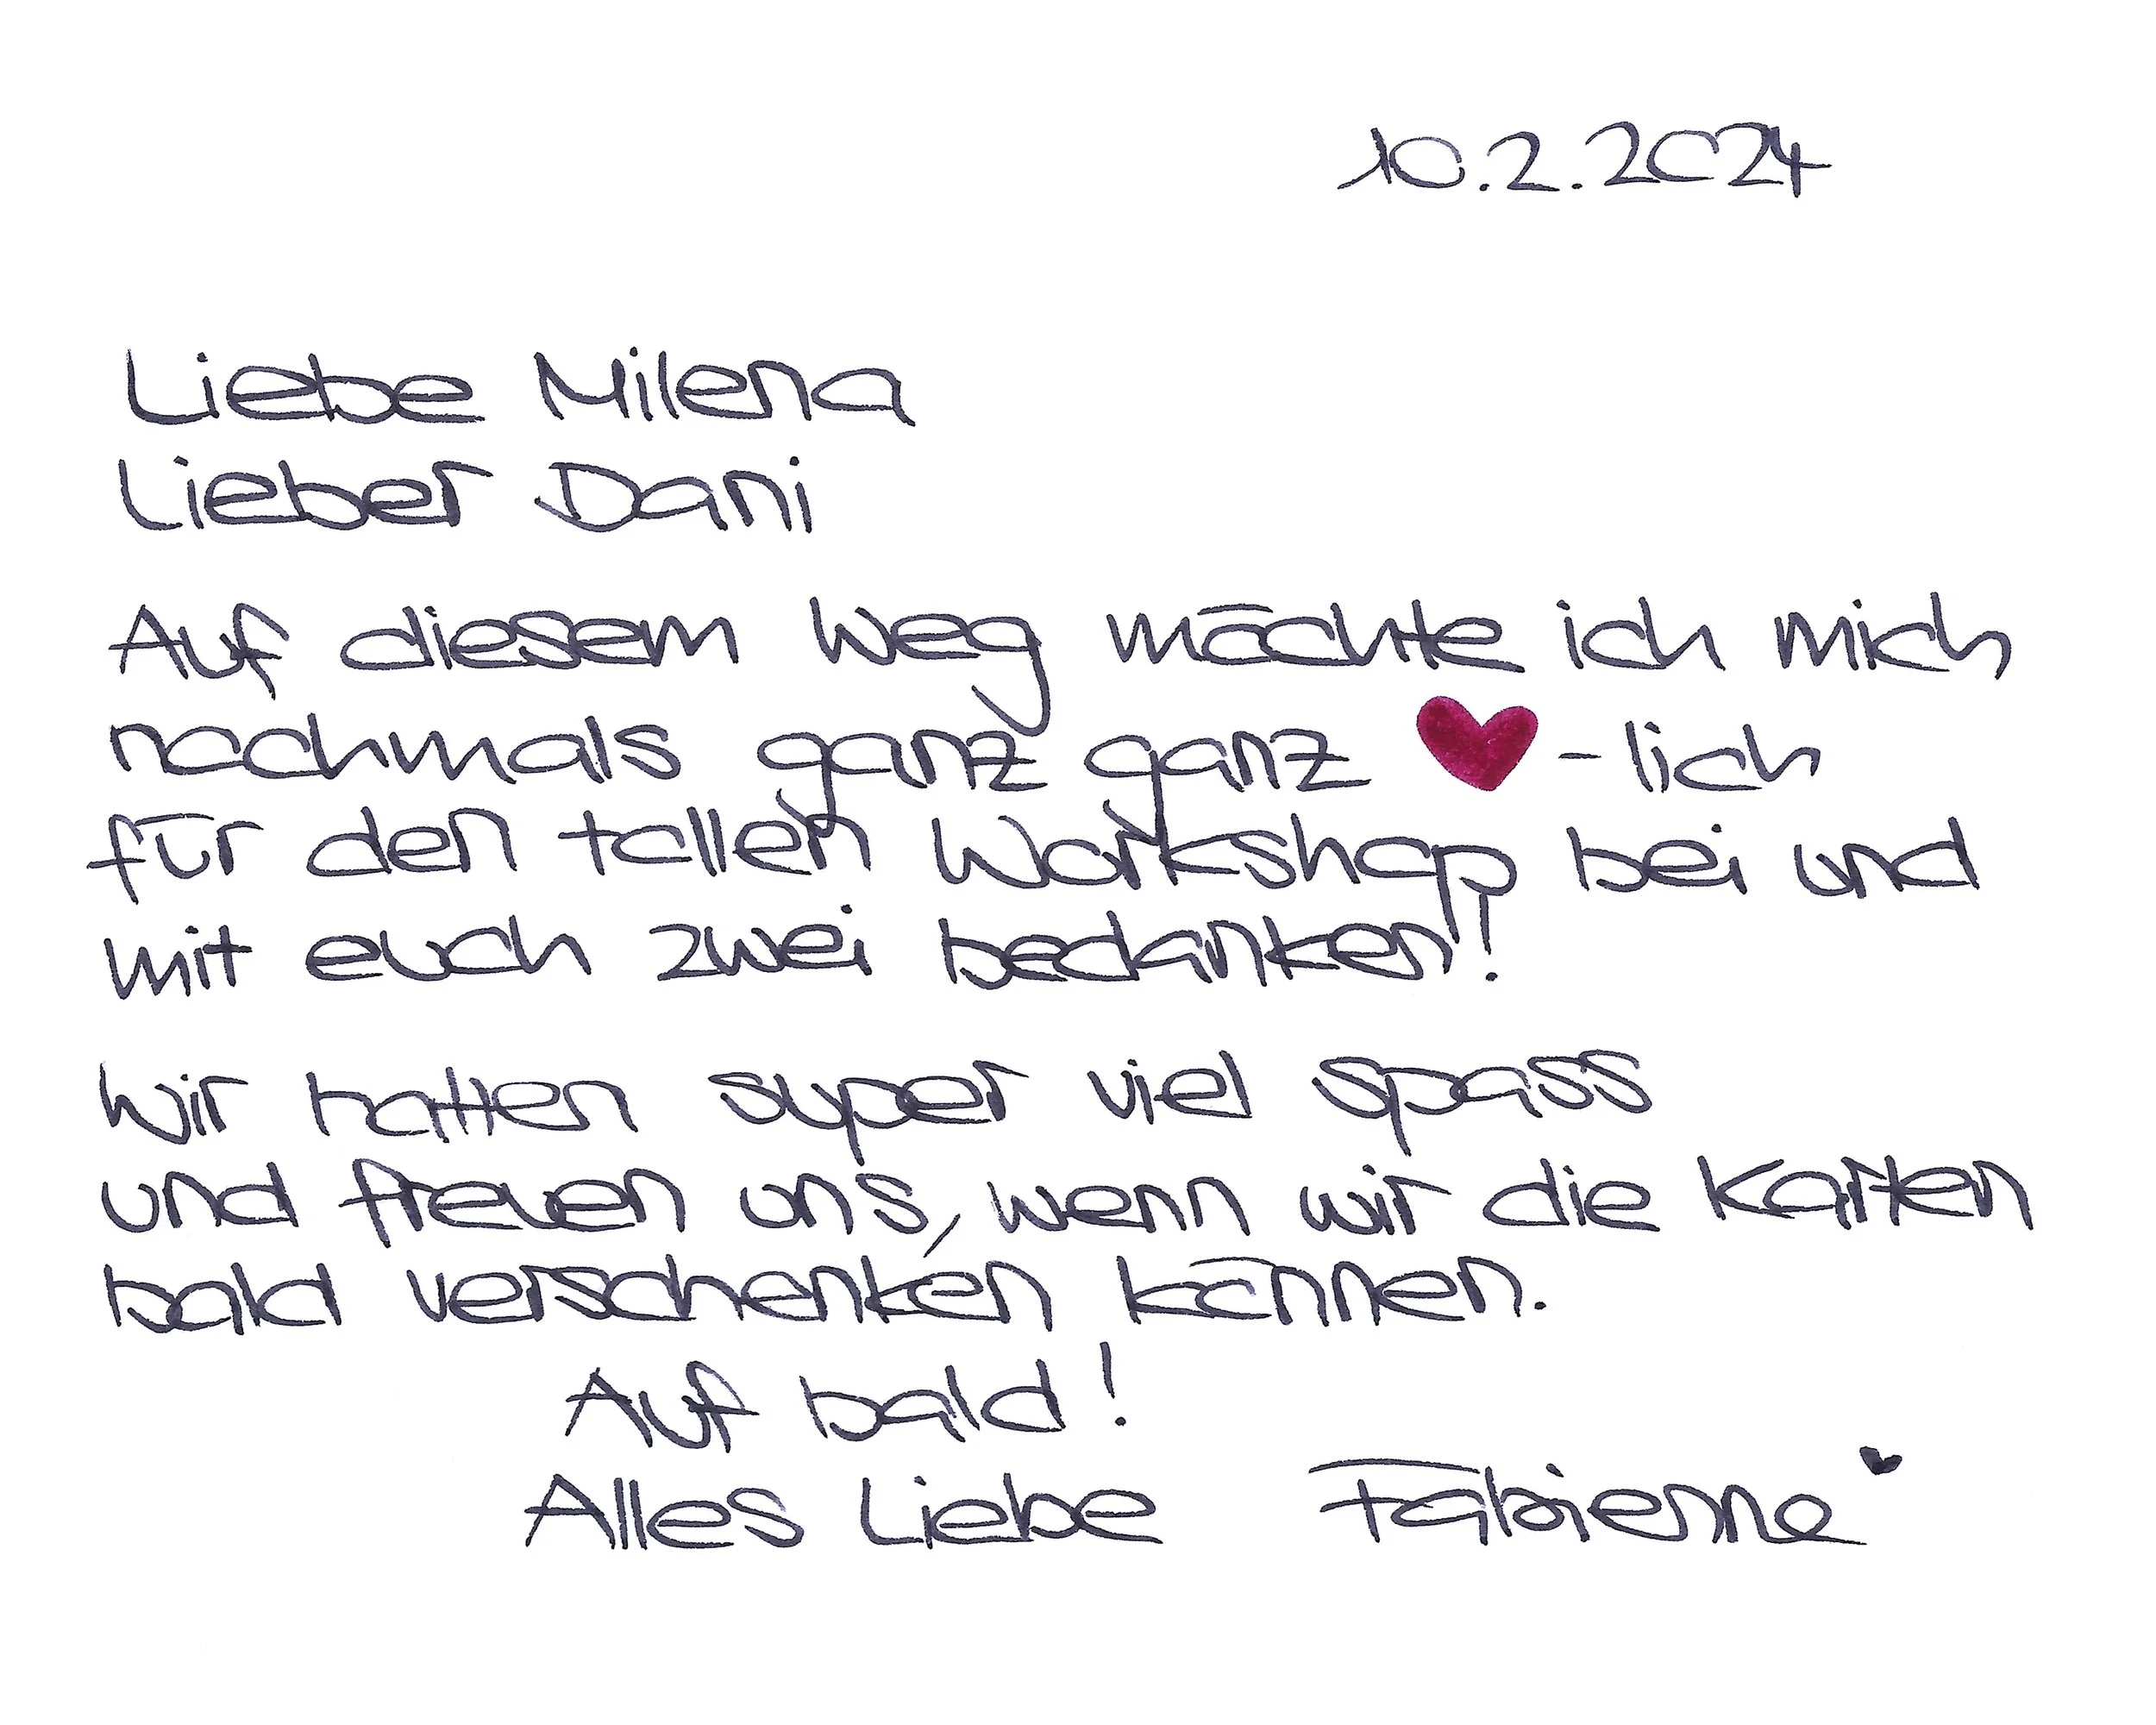 10.2.2024
Liebe Milena
Lieber Dani
Auf diesem Weg möchte ich mich
nochmals ganz ganz ♥-lich
für den tollen Workshop bei und
mit euch zwei bedanken!
Wir hatten super viel spass
und freuen uns, wenn wir die Karten
bald verschenken können.
Auf bald!
Alles Liebe Fabienne